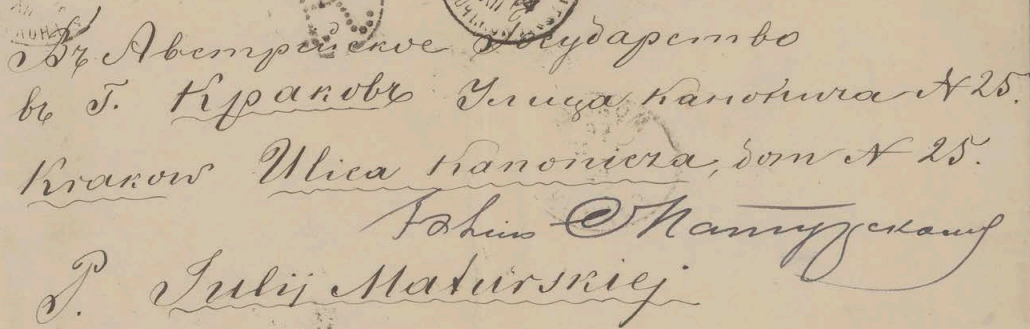 Въ Австрейское Государство
въ Г. Краковъ Улица Канонича N 25.
Krakow Ulica Kanonicza, dom N 25.
Матурской
P. Julij Maturskiej